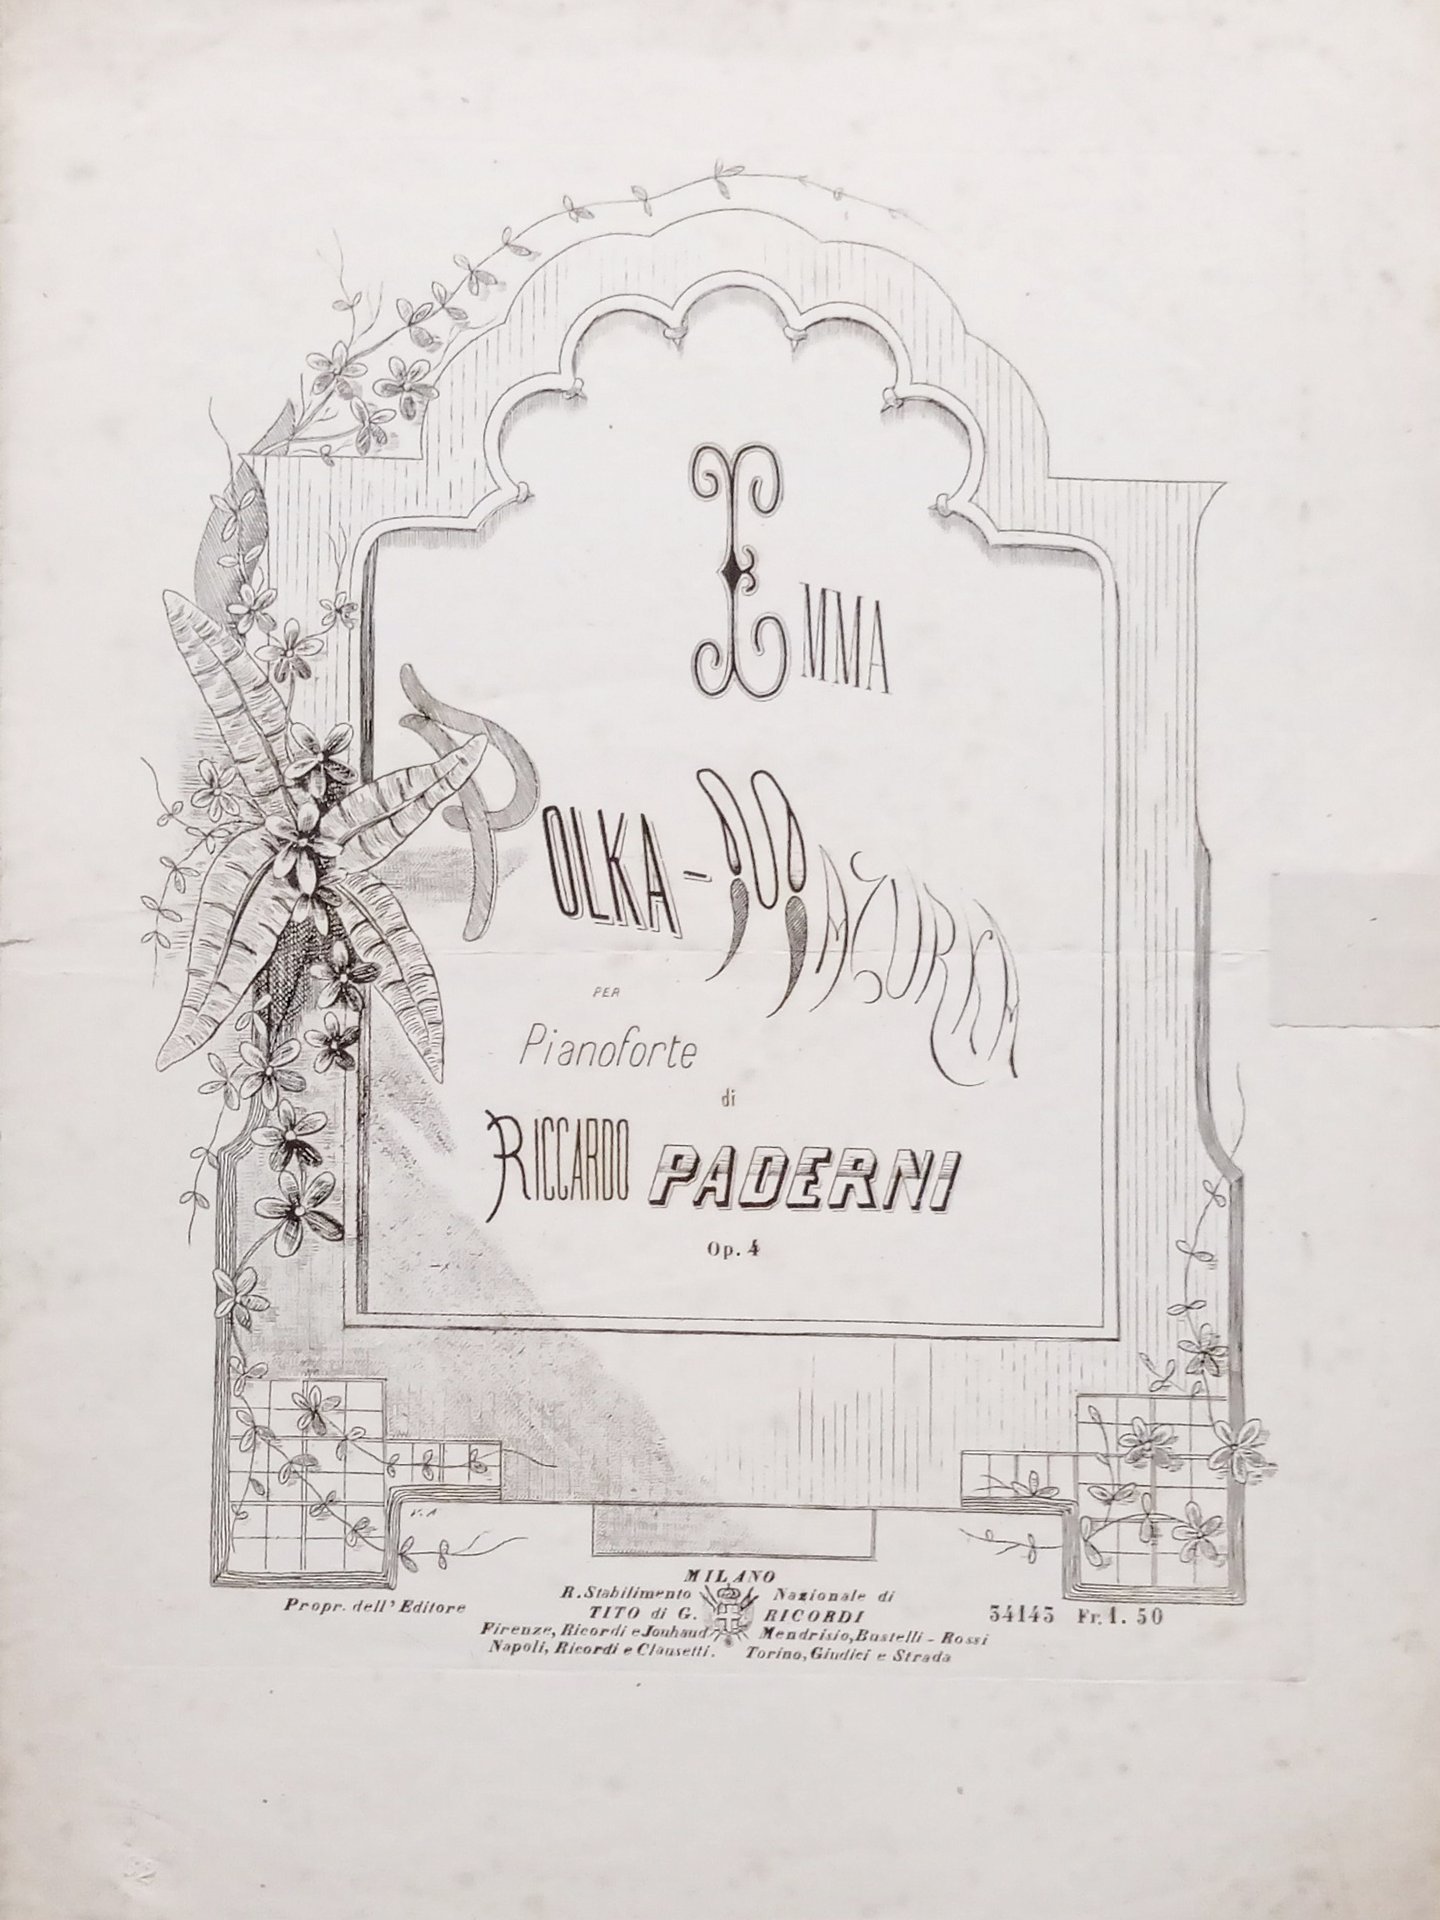 EMMA
POLKA-MAZURKA
PER
Pianoforte
di
RICCARDO PADERNI
Op. 4
V. A
MILANO
R. Stabilimento Nazionale di
TITO di G. RICORDI
Propr. dell' Editore
34143 Fr. 1. 50
Firenze, Ricordi e Jouhaud Mendrisio, Bustelli - Rossi
Napoli, Ricordi e Clausetti. Torino, Giudici e Strada